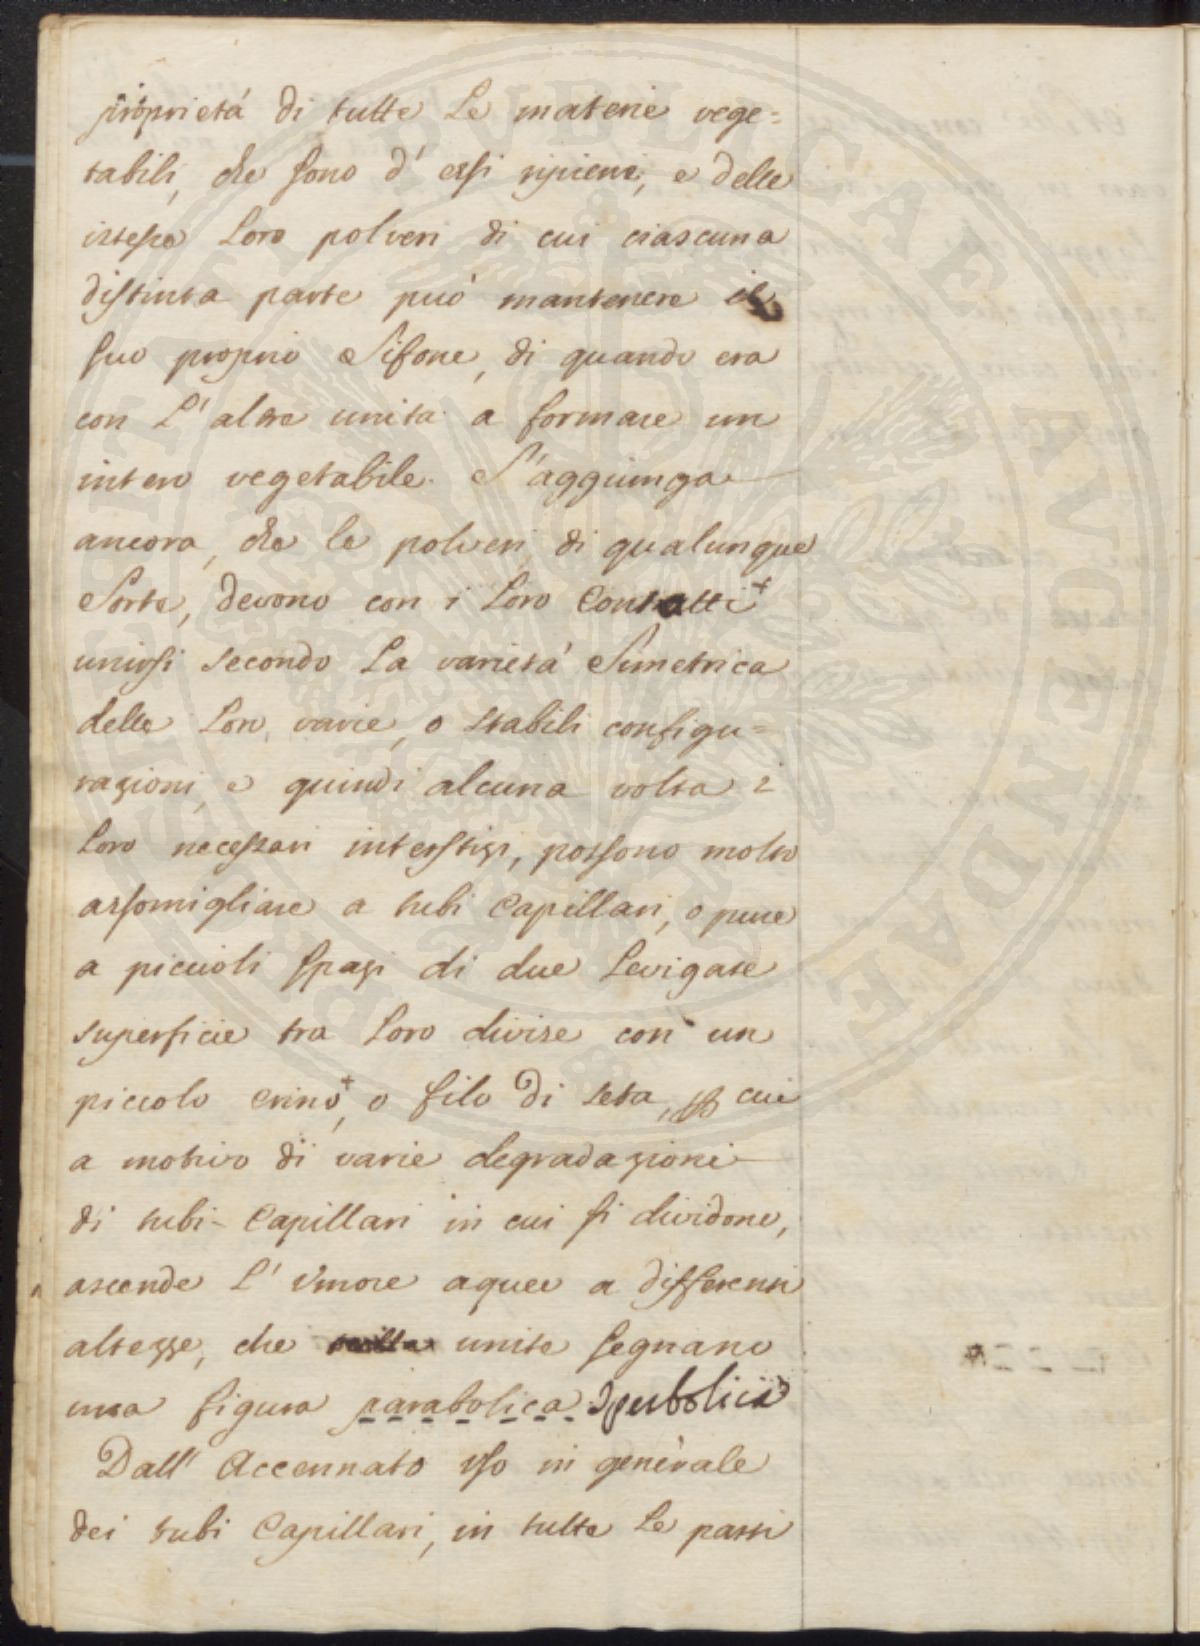 proprietá di tutte Le materie vege=
tabili, che sono d'essi ripiene, e delle
istesse Loro polveri di cui ciascuna
distinta parte può mantenere il
suo proprio Sifone, di quando era
con L'altre unita a formare un
intero vegetabile. S'aggiunga
ancora, che le polveri di qualunque
Sorte, devono con i Loro Contatti +
unirsi secondo La varietá Simetrica
delle Loro, varie, o stabili configu=
razioni, e quindi alcuna volta i
Loro necessari interstizi, possono molto
assomigliare a tubi Capillari, o pure
a piccioli spazi di due Levigate
superficie tra Loro divise con un
piccolo crino +, o filo di seta, per cui
a motivo di varie degradazioni
di tubi Capillari in cui si dividono,
ascende L'Umore aqueo a differenti
altezze, che unite segnano
una figura parabolica. Iperbolica
Dall'Accennato uso in generale
dei tubi Capillari, in tutte Le parti
PVBLICAE AVGENDAE